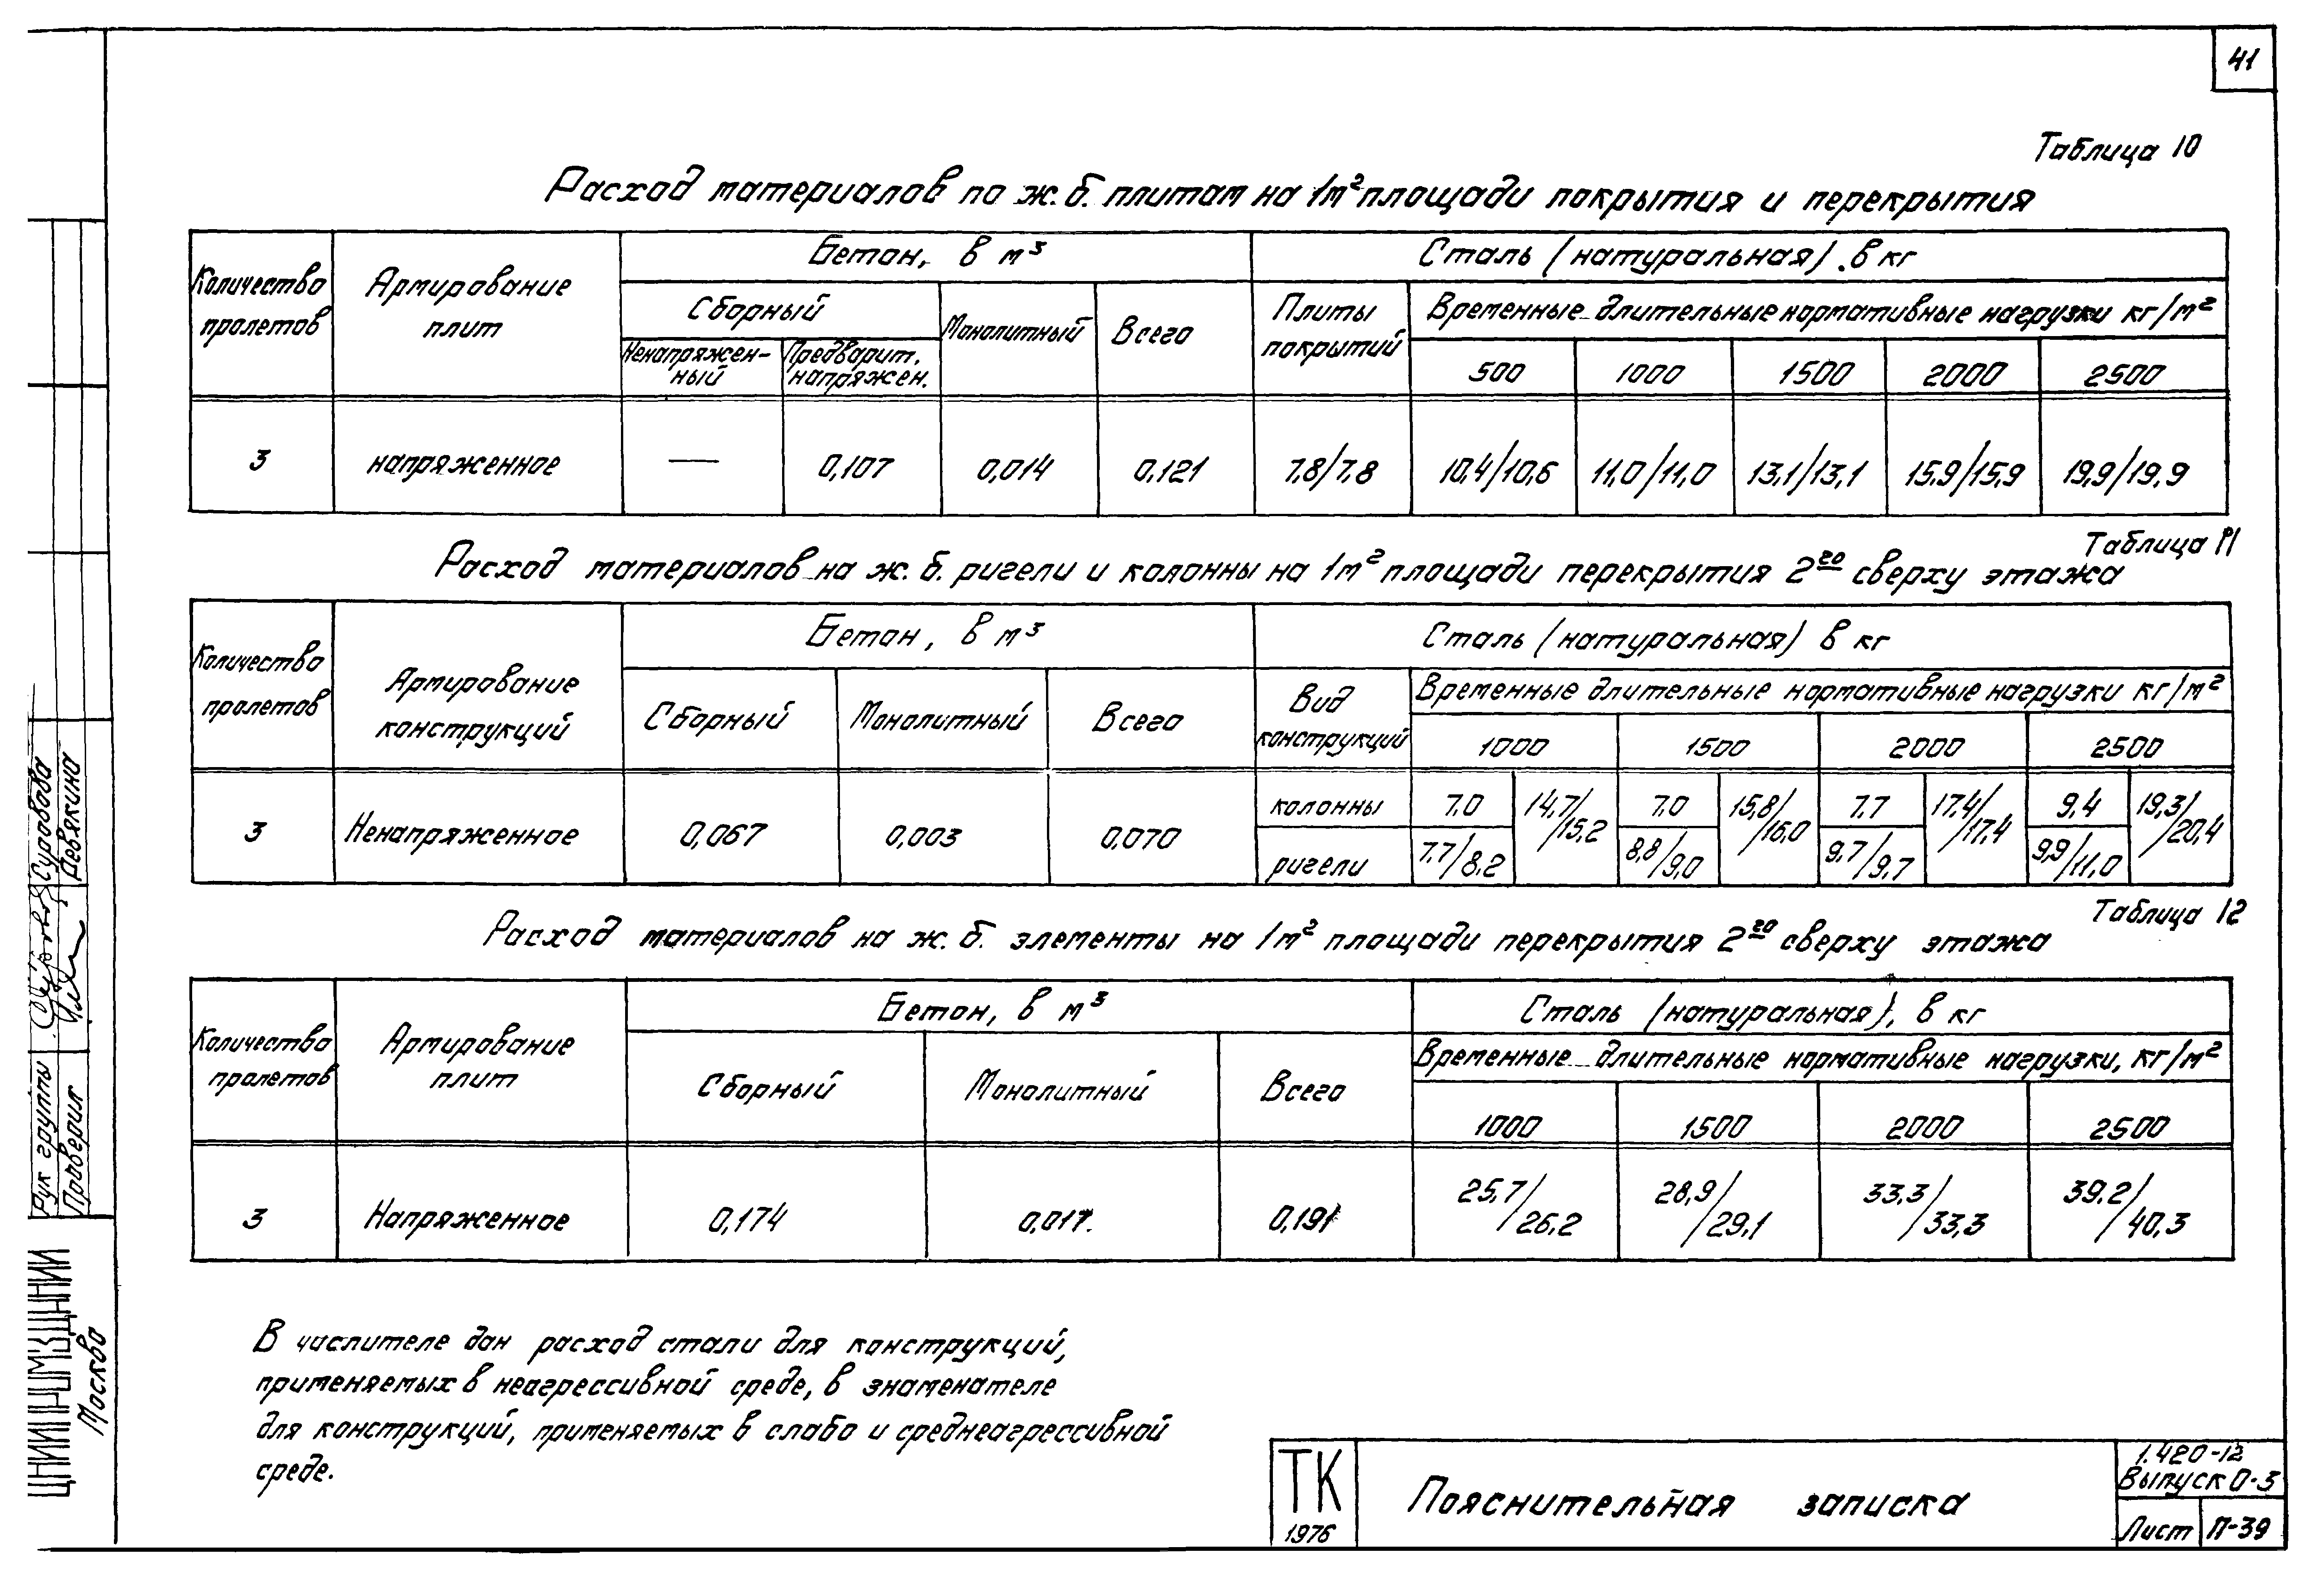 41
Таблица 10
Расход материалов по ж.б. плитам на 1м² площади покрытия и перекрытия
Количество пролетов
Армирование плит
Бетон, в м³
Сталь (натуральная). в кг
Сборный
Монолитный
Всего
Плиты покрытий
Временные длительные нормативные нагрузки кг/м²
Ненапряжен-
ный
Предварит. напряжен.
500 1000 1500 2000 2500
3 напряженное — 0,107 0,014 0,121 7,8/7,8 10,4/10,6 11,0/11,0 13,1/13,1 15,9/15,9 19,9/19,9
Таблица 11
Расход материалов на ж.б. ригели и колонны на 1м² площади перекрытия 2го сверху этажа
Количество пролетов
Армирование конструкций
Бетон, в м³
Сталь (натуральная) в кг
Сборный
Монолитный
Всего
Вид конструкций
Временные длительные нормативные нагрузки кг/м²
1000 1500 2000 2500
3 Ненапряженное 0,067 0,003 0,070
колонны 7.0 14,7/15,2 7.0 15,8/16,0 7.7 17.4/17,4 9,4 19,3/20,4
ригели 7,7/8,2 8,8/9,0 9,7/9,7 9,9/11,0
Таблица 12
Расход материалов на ж.б. элементы на 1м² площади перекрытия 2го сверху этажа
Количество пролетов
Армирование плит
Бетон, в м³
Сталь (натуральная), в кг
Сборный
Монолитный
Всего
Временные длительные нормативные нагрузки, кг/м²
1000 1500 2000 2500
3 Напряженное 0,174 0,017. 0,191 25,7/26,2 28,9/29,1 33,3/33,3 39,2/40,3
В числителе дан расход стали для конструкций,
применяемых в неагрессивной среде, в знаменателе
для конструкций, применяемых в слабо и среднеагрессивной
среде.
ТК
1976
Пояснительная записка
1.420-12
Выпуск 0-3
Лист П-39
Рук группы Суровова
Проверил Девякина
Москва